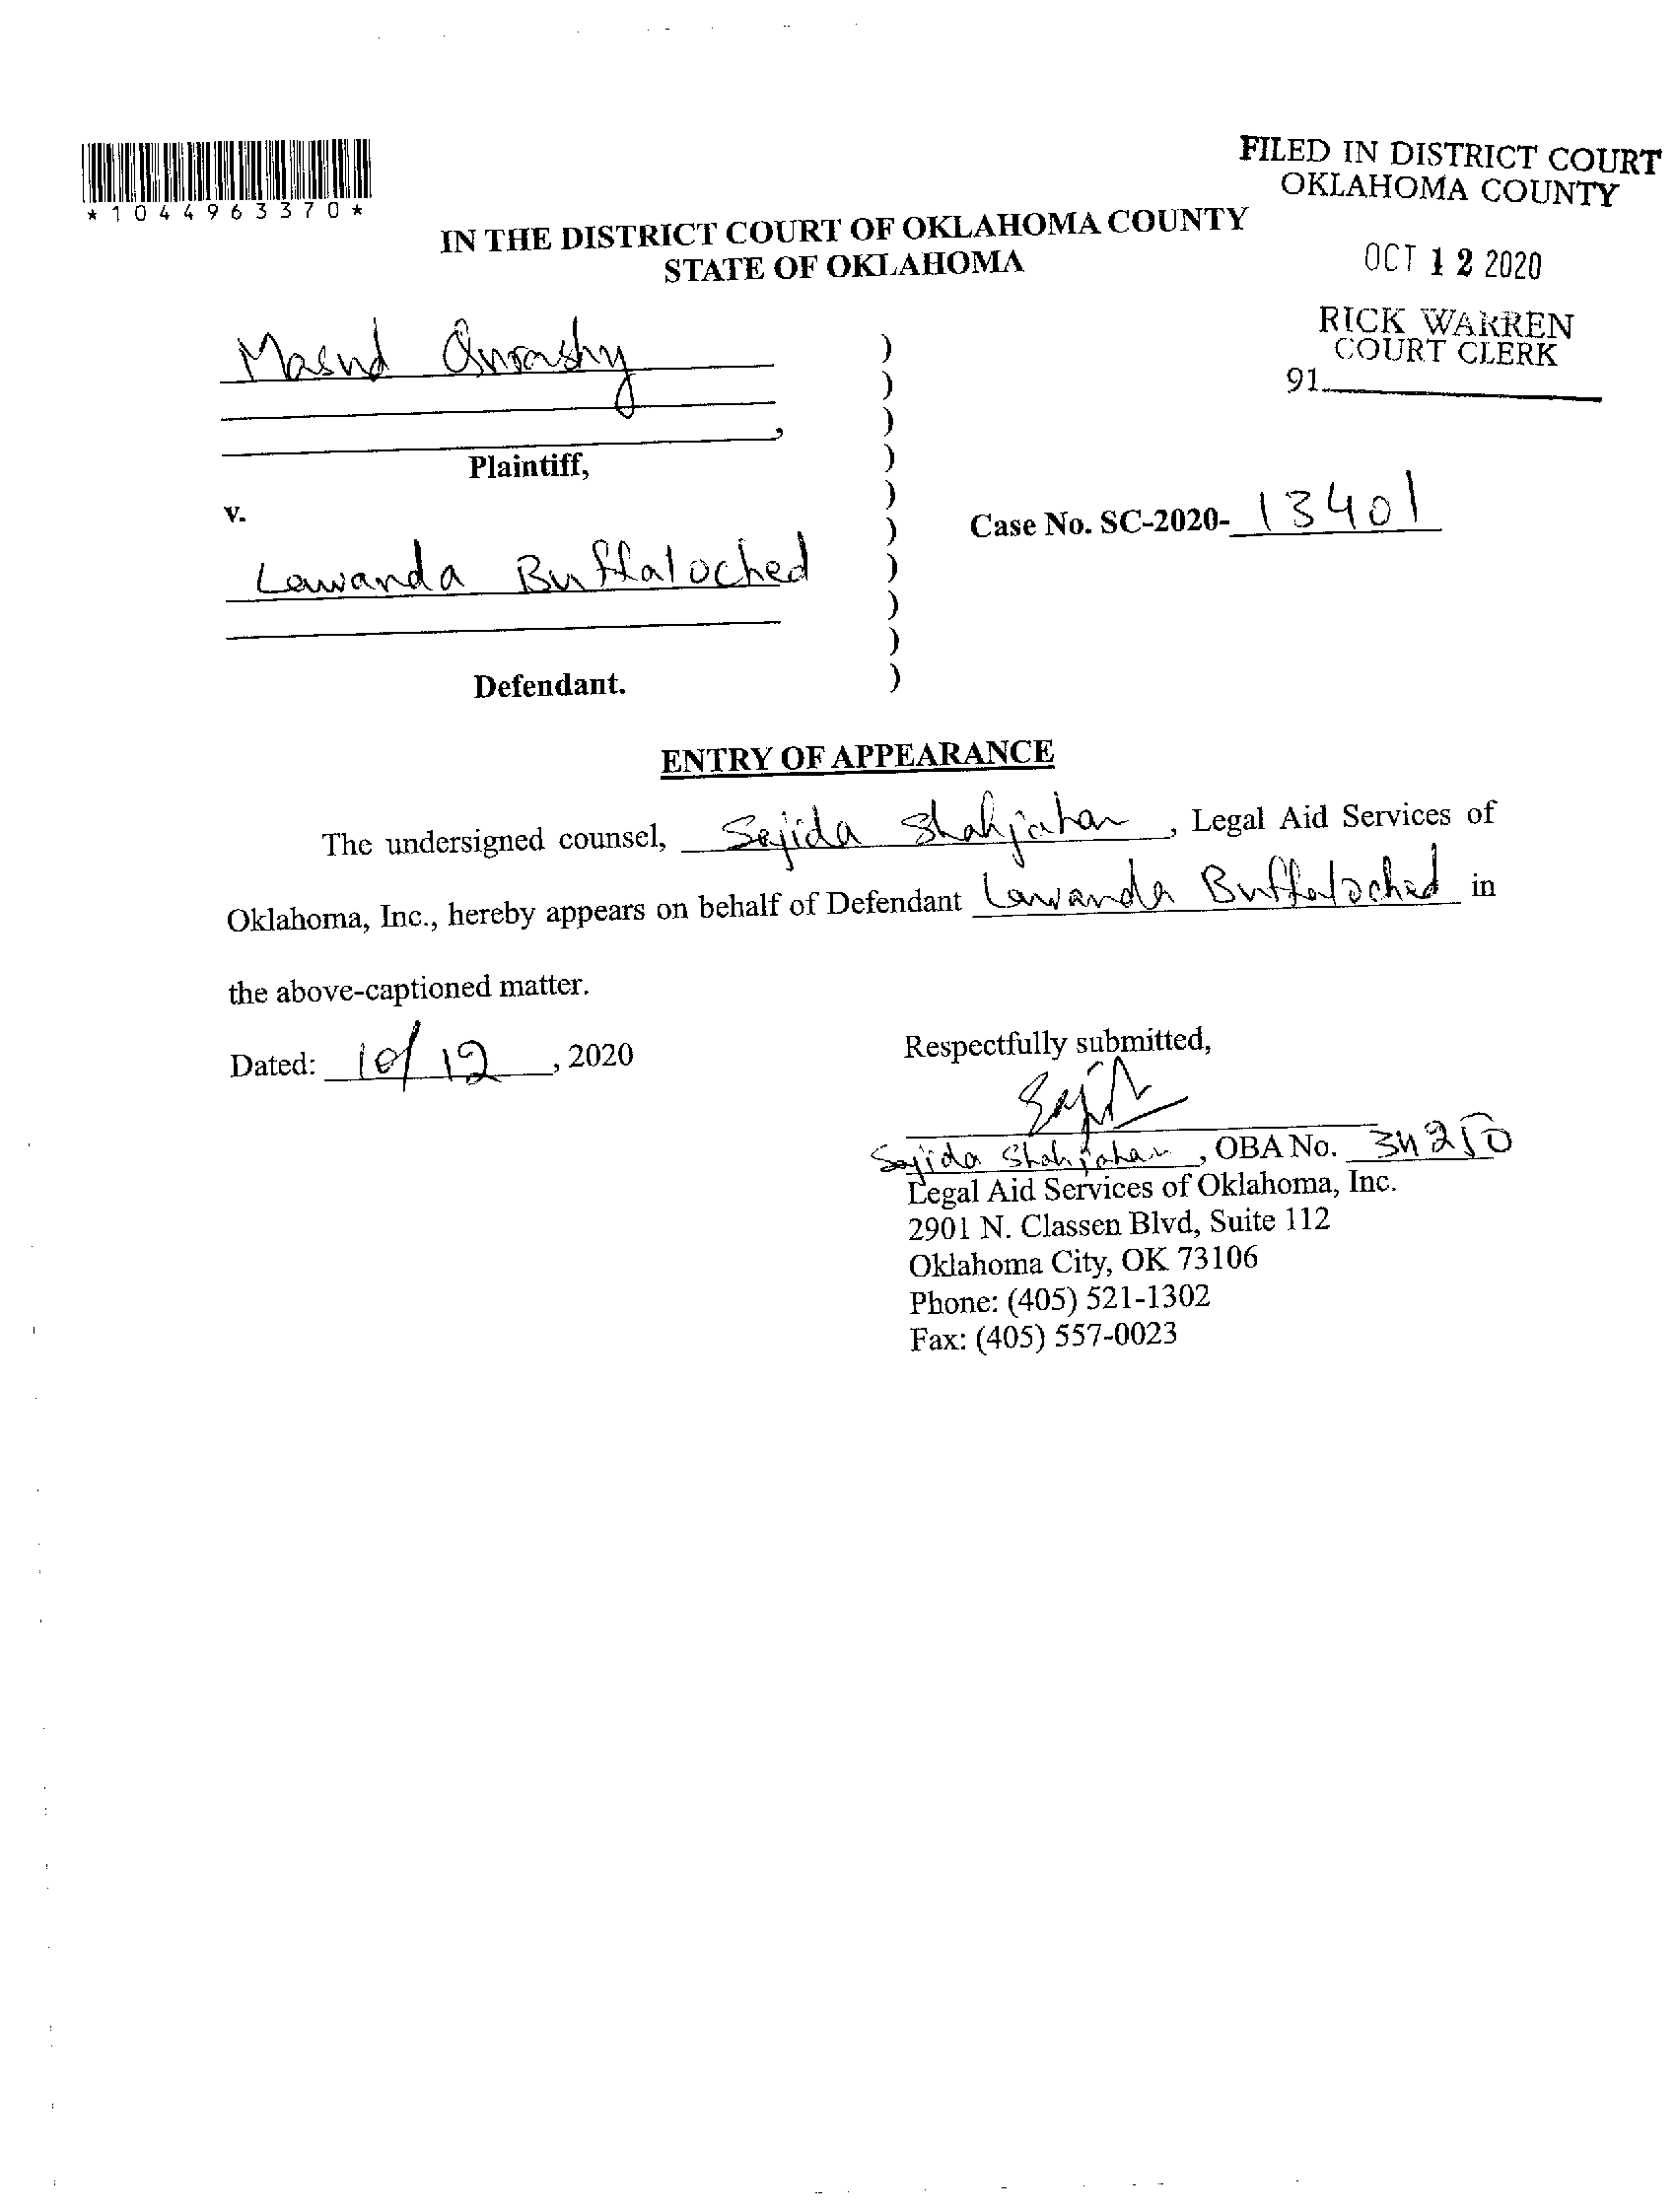 *1044963370*
FILED IN DISTRICT COURT
OKLAHOMA COUNTY
IN THE DISTRICT COURT OF OKLAHOMA COUNTY
STATE OF OKLAHOMA
OCT 12 2020
RICK WARREN
COURT CLERK
91
Masud Qurashy )
)
) ,
Plaintiff, )
)
v. ) Case No. SC-2020- 13401
Lawanda Buffaloched )
)
)
Defendant. )
ENTRY OF APPEARANCE
The undersigned counsel, Sajida Shahjahan, Legal Aid Services of
Oklahoma, Inc., hereby appears on behalf of Defendant Lawanda Buffaloched in
the above-captioned matter.
Dated: 10/12, 2020
Respectfully submitted,
Sajida Shahjahan, OBA No. 34250
Legal Aid Services of Oklahoma, Inc.
2901 N. Classen Blvd, Suite 112
Oklahoma City, OK 73106
Phone: (405) 521-1302
Fax: (405) 557-0023